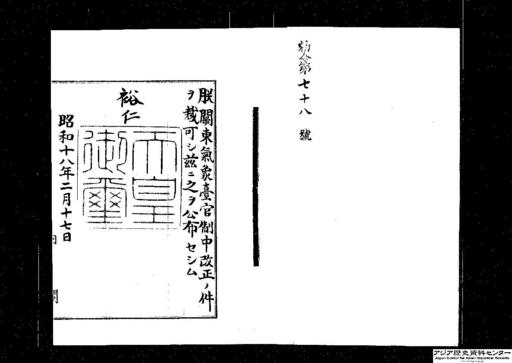 勅令第七十八號
朕關東氣象臺官制中改正ノ件
ヲ裁可シ茲ニ之ヲ公布セシム
裕仁
天皇
御璽
昭和十八年二月十七日
内閣
アジア歴史資料センター
Japan Center for Asian Historical Records